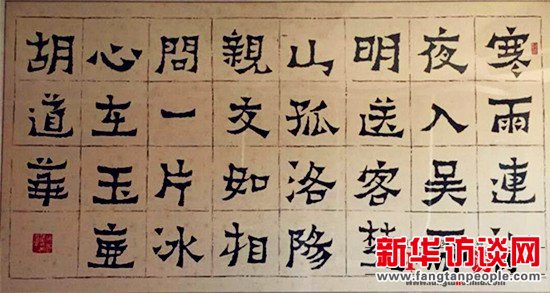 寒雨連
夜入吳
明送客楚
山孤洛陽
親友如相
問一片冰
心在玉壺
胡道華
新华访谈网
www.fangtanpeople.com